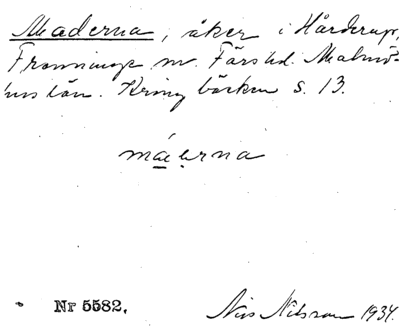 Maderna, åker i Hårderup,
Frenninge sn. Färs hd. Malmö-
hus län. Kring bäcken s. 13.
máerna
Nr 5582.
Nils Nilsson 1934.